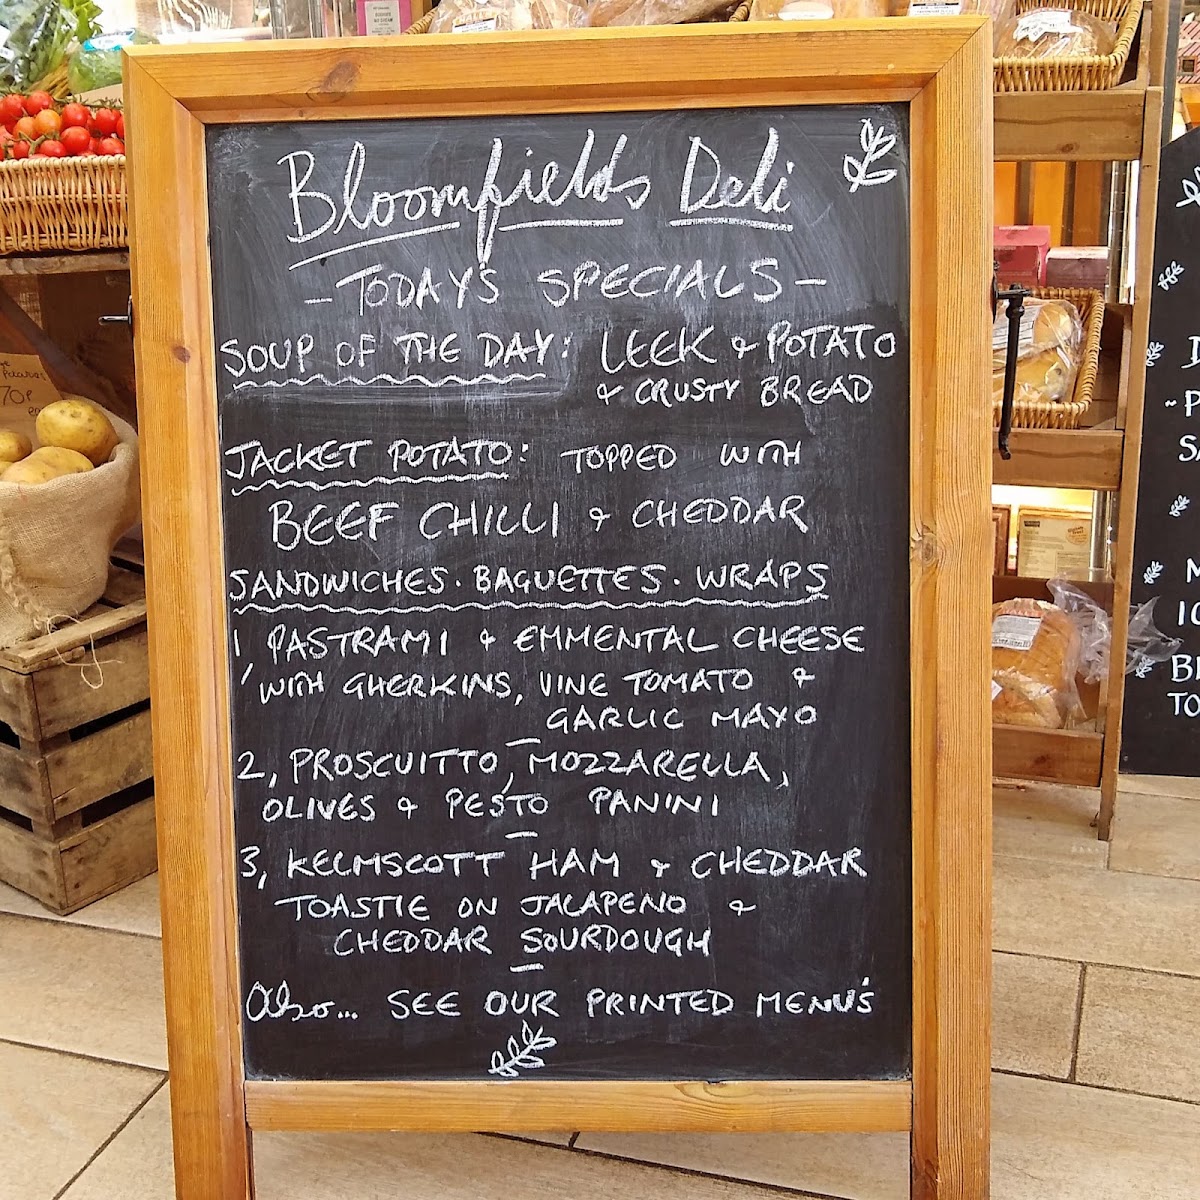 Bloomfields Deli
- TODAY'S SPECIALS -
SOUP OF THE DAY: LEEK & POTATO
& CRUSTY BREAD
JACKET POTATO: TOPPED WITH
BEEF CHILLI & CHEDDAR
SANDWICHES · BAGUETTES · WRAPS
1, PASTRAMI & EMMENTAL CHEESE
WITH GHERKINS, VINE TOMATO &
GARLIC MAYO
2, PROSCUITTO, MOZZARELLA,
OLIVES & PESTO PANINI
3, KELMSCOTT HAM & CHEDDAR
TOASTIE ON JALAPENO &
CHEDDAR SOURDOUGH
Also... SEE OUR PRINTED MENU'S
70P